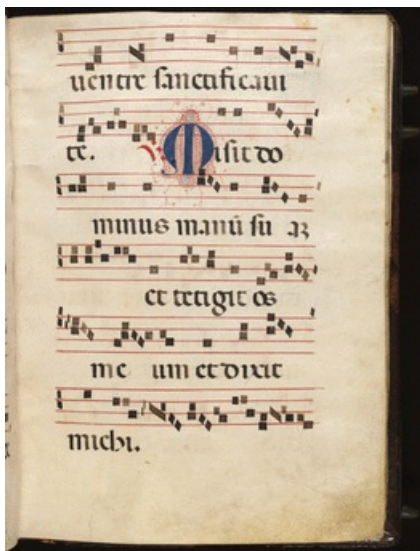 uentre sanctificaui
te. Misit do
minus manū su aʒ
et tetigit os
me um et dixit
michi.